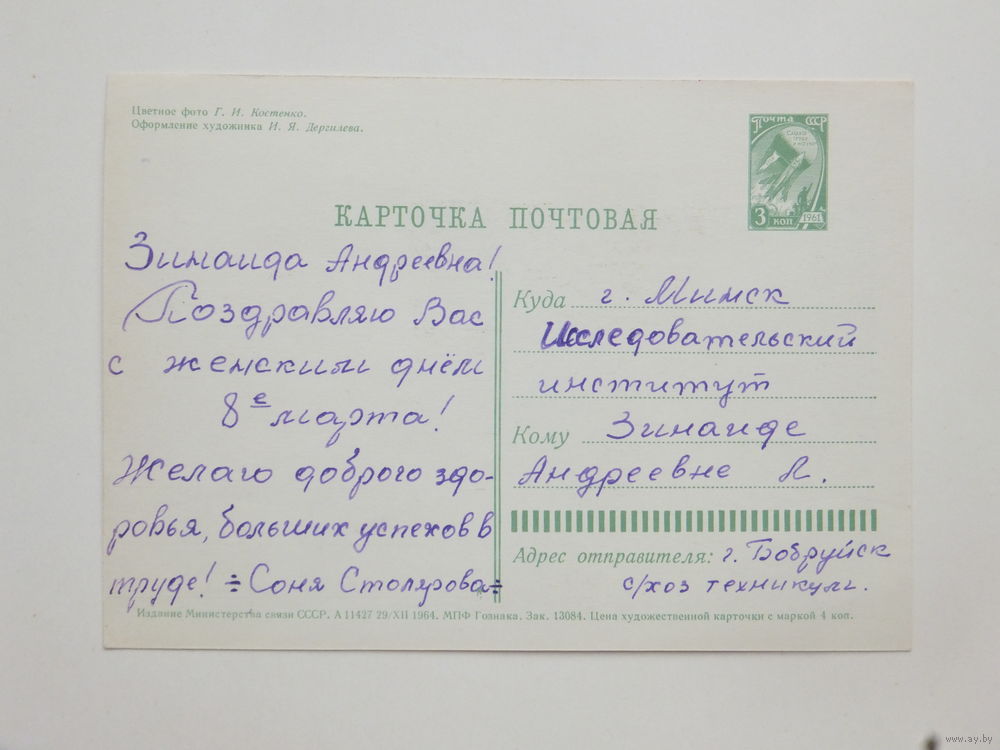 Цветное фото Г. И. Костенко.
Оформление художника И. Я. Дергилева.
Почта СССР
3 коп
1961
КАРТОЧКА ПОЧТОВАЯ
Зинаида Андреевна!
Поздравляю Вас
с женским днём
8е марта!
Желаю доброго здо-
ровья, больших успехов в
труде! ÷ Соня Столярова ÷
Куда г. Минск
Исследовательский
институт
Кому Зинаиде
Андреевне Л.
Адрес отправителя: г. Бобруйск
с/хоз техникум.
Издание Министерства связи СССР. А 11427 29/XII 1964. МПФ Гознака. Зак. 13084. Цена художественной карточки с маркой 4 коп.
www.ay.by